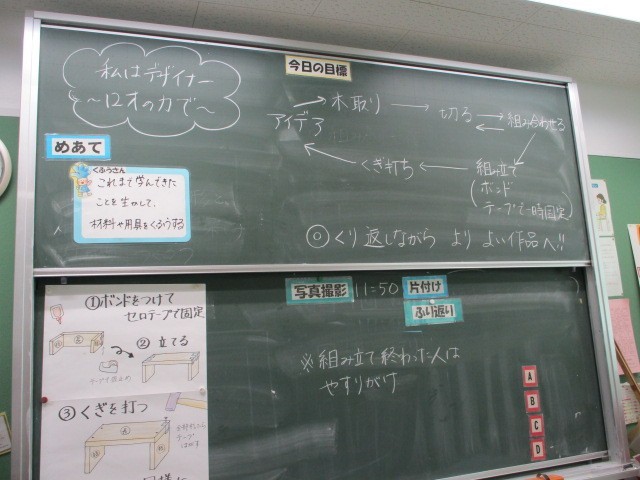 私はデザイナー
～12才の力で～
今日の目標
めあて
くふうさん
これまで学んできた
ことを生かして、
材料や用具をくふうする
アイデア
木取り
切る
組み合わせる
組み立て
(ボンド
テープで一時固定)
くぎ打ち
◎くり返しながら より よい作品へ!!
写真撮影 11:50 片付け
ふり返り
※組み立て終わった人は
やすりがけ
①ボンドをつけて
セロテープで固定
②立てる
③くぎを打つ
A
B
C
D